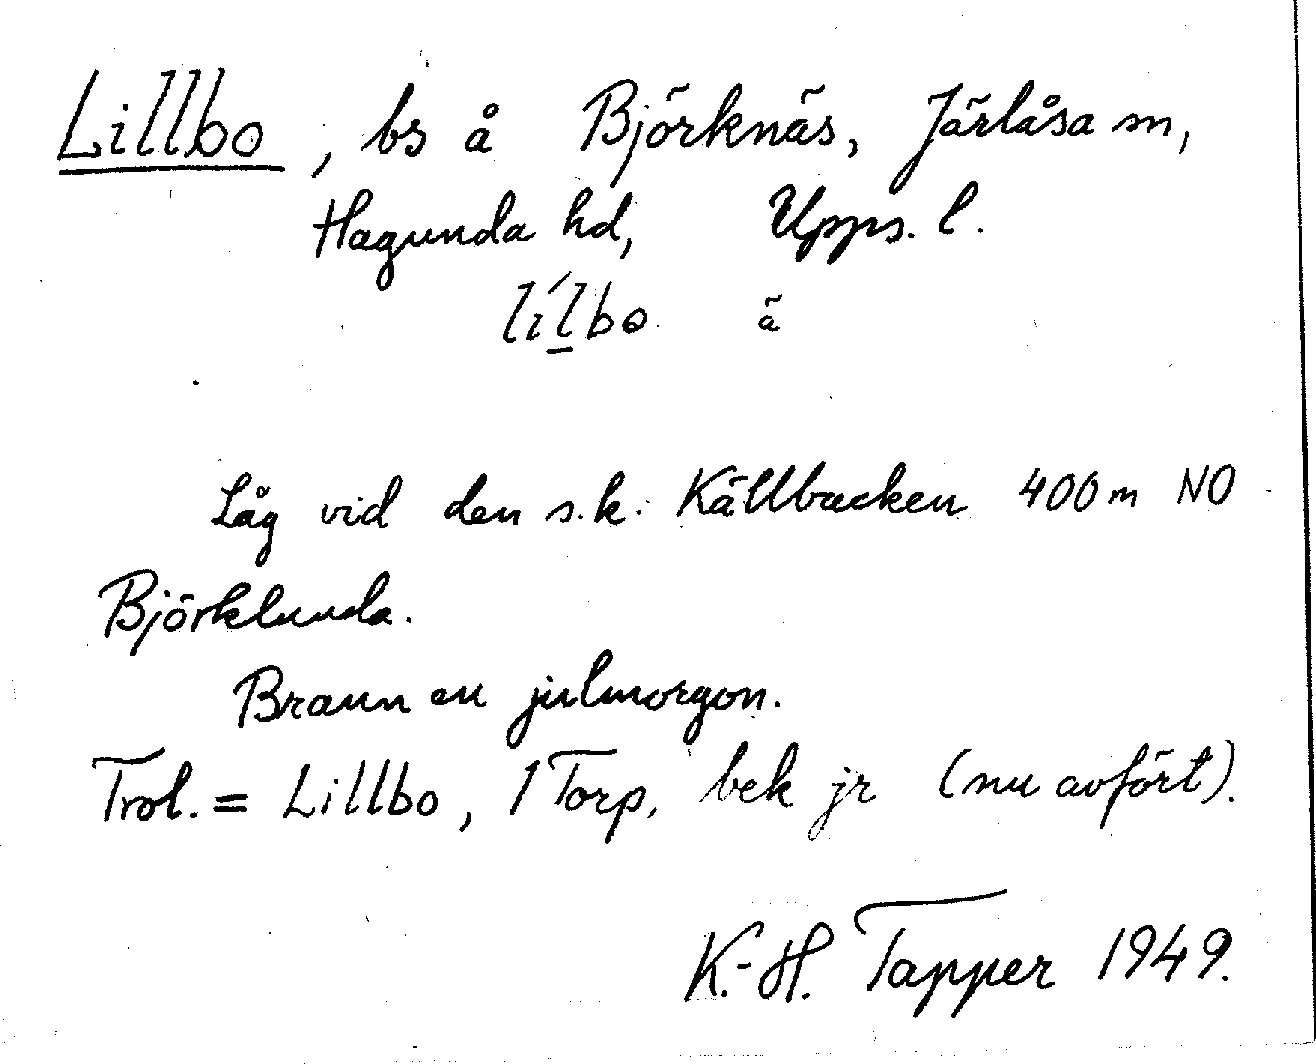 Lillbo, bs å Björknäs, Järlåsa sn,
Hagunda hd, Upps. l.
lí̱lbo ä
Låg vid den s.k. Källbacken 400 m NO
Björklunda.
Brann en julmorgon.
Trol. = Lillbo, 1 Torp, bek jr (nu avfört).
K.-H. Tapper 1949.